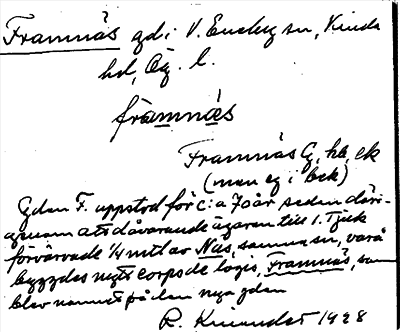 Framnäs gd i V. Eneby sn, Kinda
hd, Ög. l.
främnäs
Framnäs G, hb, ek
(men ej i bek)
Gden F. uppstod för c:a 70 år sedan däri-
genom att dåvarande ägaren till 1. Tjuk
förvärvade 1/4 mtl av Näs, samma sn, varå
byggdes nytt corps de logis, Framnäs, som
blev namnet på den nya gden
R. 1928